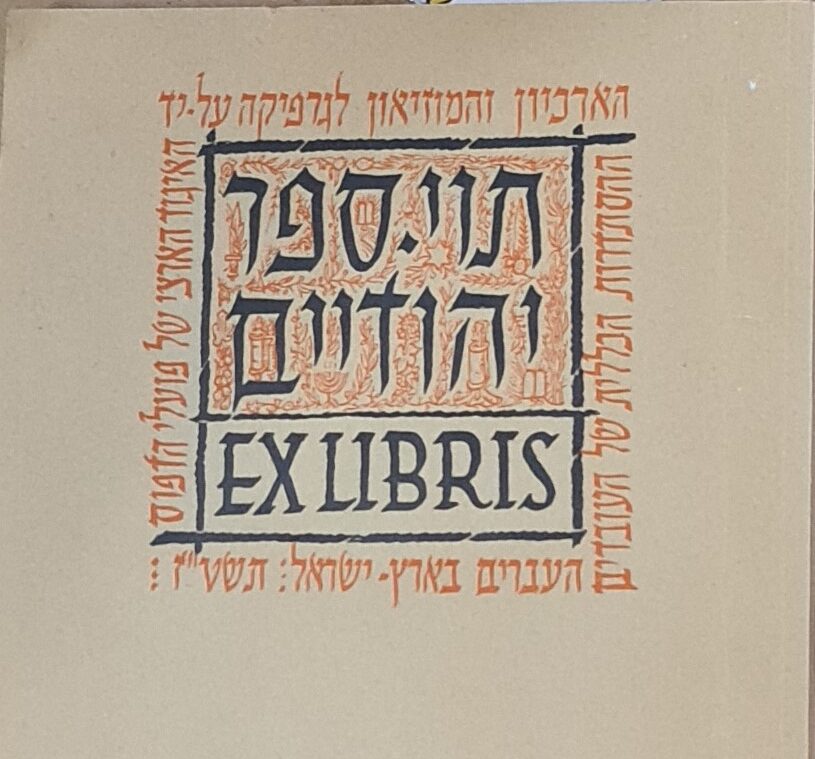 הארכיון והמוזיאון לגרפיקה על-יד
האיגוד הארצי של פועלי הדפוס
ההסתדרות הכללית של העובדים
העברים בארץ-ישראל: תשט"ז :
תוי.ספר
יהודיים
EX LIBRIS